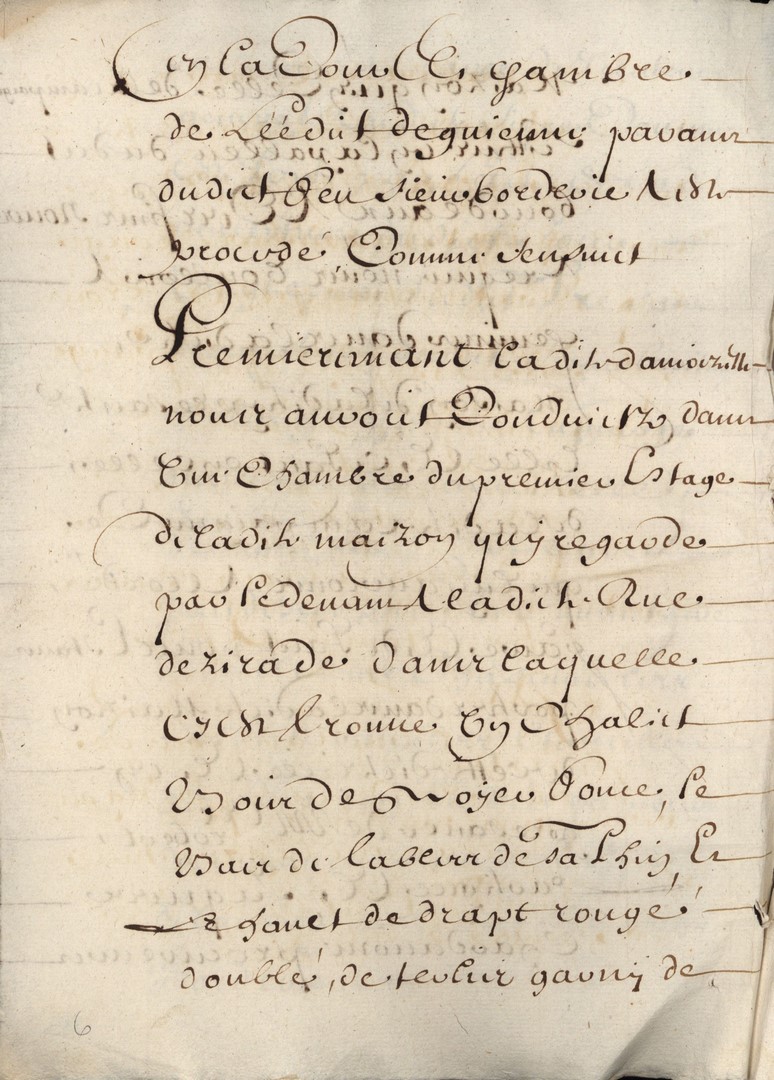 en la Cour et chambre
de Léédit de guienne par avant
du dict feu sieur borderie A esté
procédé, Comme sensuict
Premieremant Ladite damoizelle
nous auroit Conduictz, dans
Une Chambre du premier Estage
de ladite maizon quy regarde
par le devant A ladicte Rue
de zirade dans laquelle
Cest trouvé Un Chalict
bois de noyer, le
bas de
de drapt rougé
doublé, de garny de
6